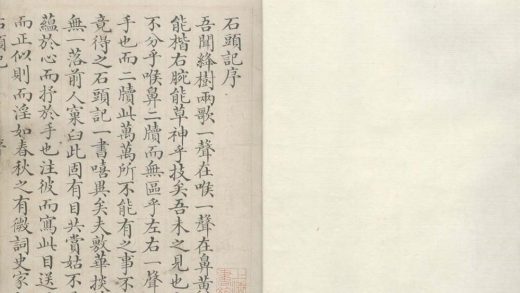 石頭記序
吾聞絳樹兩歌一聲在喉一聲在鼻黃
能楷右腕能草神乎技矣吾未之見也
不分乎喉鼻二牘而無區乎左右一聲
手也而二牘此萬萬所不能有之事不
竟得之石頭記一書嘻異矣夫敷華掞
無一落前人窠臼此固有目共賞姑不
蘊於心而抒於手也注彼而寫此目送
而正似則而淫如春秋之有微詞史家
石頭記